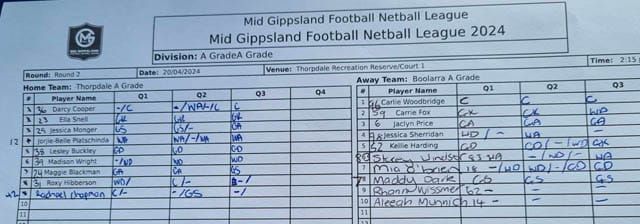 Mid Gippsland Football Netball League
Mid Gippsland Football Netball League 2024
Division: A GradeA Grade
Round: Round 2 Date: 20/04/2024 Venue: Thorpdale Recreation Reserve/Court 1 Time: 2:15
Home Team: Thorpdale A Grade
# Player Name Q1 Q2 Q3 Q4
36 Darcy Cooper -/C -/WA/-/C C
23 Ella Snell GK GK GK
29 Jessica Monger GS GS/- GA
12 Jorjie-Belle Platschinda WA WA/-/WA WA
Lesley Buckley GD GD GD
39 Madison Wright -/WD WD WD
24 Maggie Blackman GA GA GS
31 Roxy Hibberson WD/ C/-
Rachael Chapman C/- -/GS -/
10
Away Team: Boolarra A Grade
# Player Name Q1 Q2 Q3
1 Carlie Woodbridge C C C
2 59 Carrie Fox GK GK WD
3 6 Jaclyn Price GA GA GA
4 Jessica Sherridan WD/- WA -
5 52 Kellie Harding GD GD/-/WD GK
Stacey Windsor WA -/WD/- WA
Mia O'Brien 18 -/WD WD/-/GD GD
Maddy Dark GS GS GS
9 Rhonn Wissmer 62 - - -
10 Aleeah Munnich 14 - - -